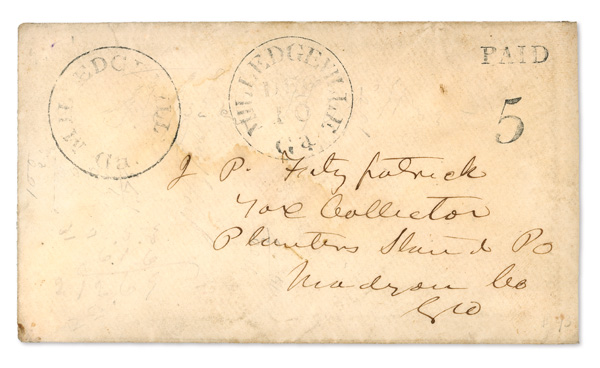 MILLEDGEVILLE
Ga.
MILLEDGEVILLE
10
Ga
PAID
5
J P. Fitzpatrick
Tax Collector
Planters Stand Po
Madison Co
Geo